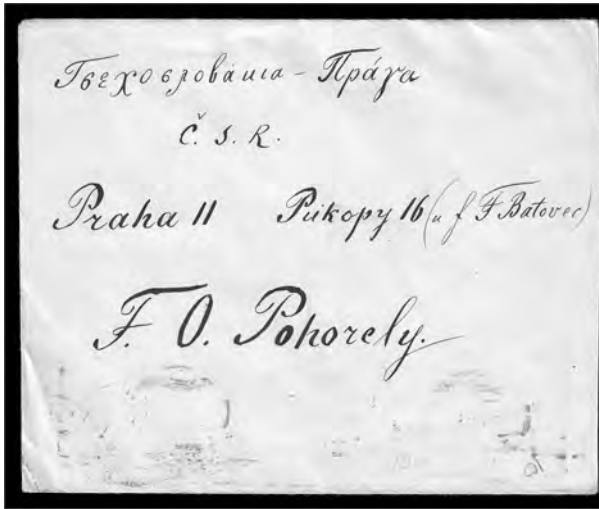 Τσεχοσλοβάκια - Πράγα
Č. S. R.
Praha II Prikopy 16 (u f F Batovec)
F. O. Pohorely.